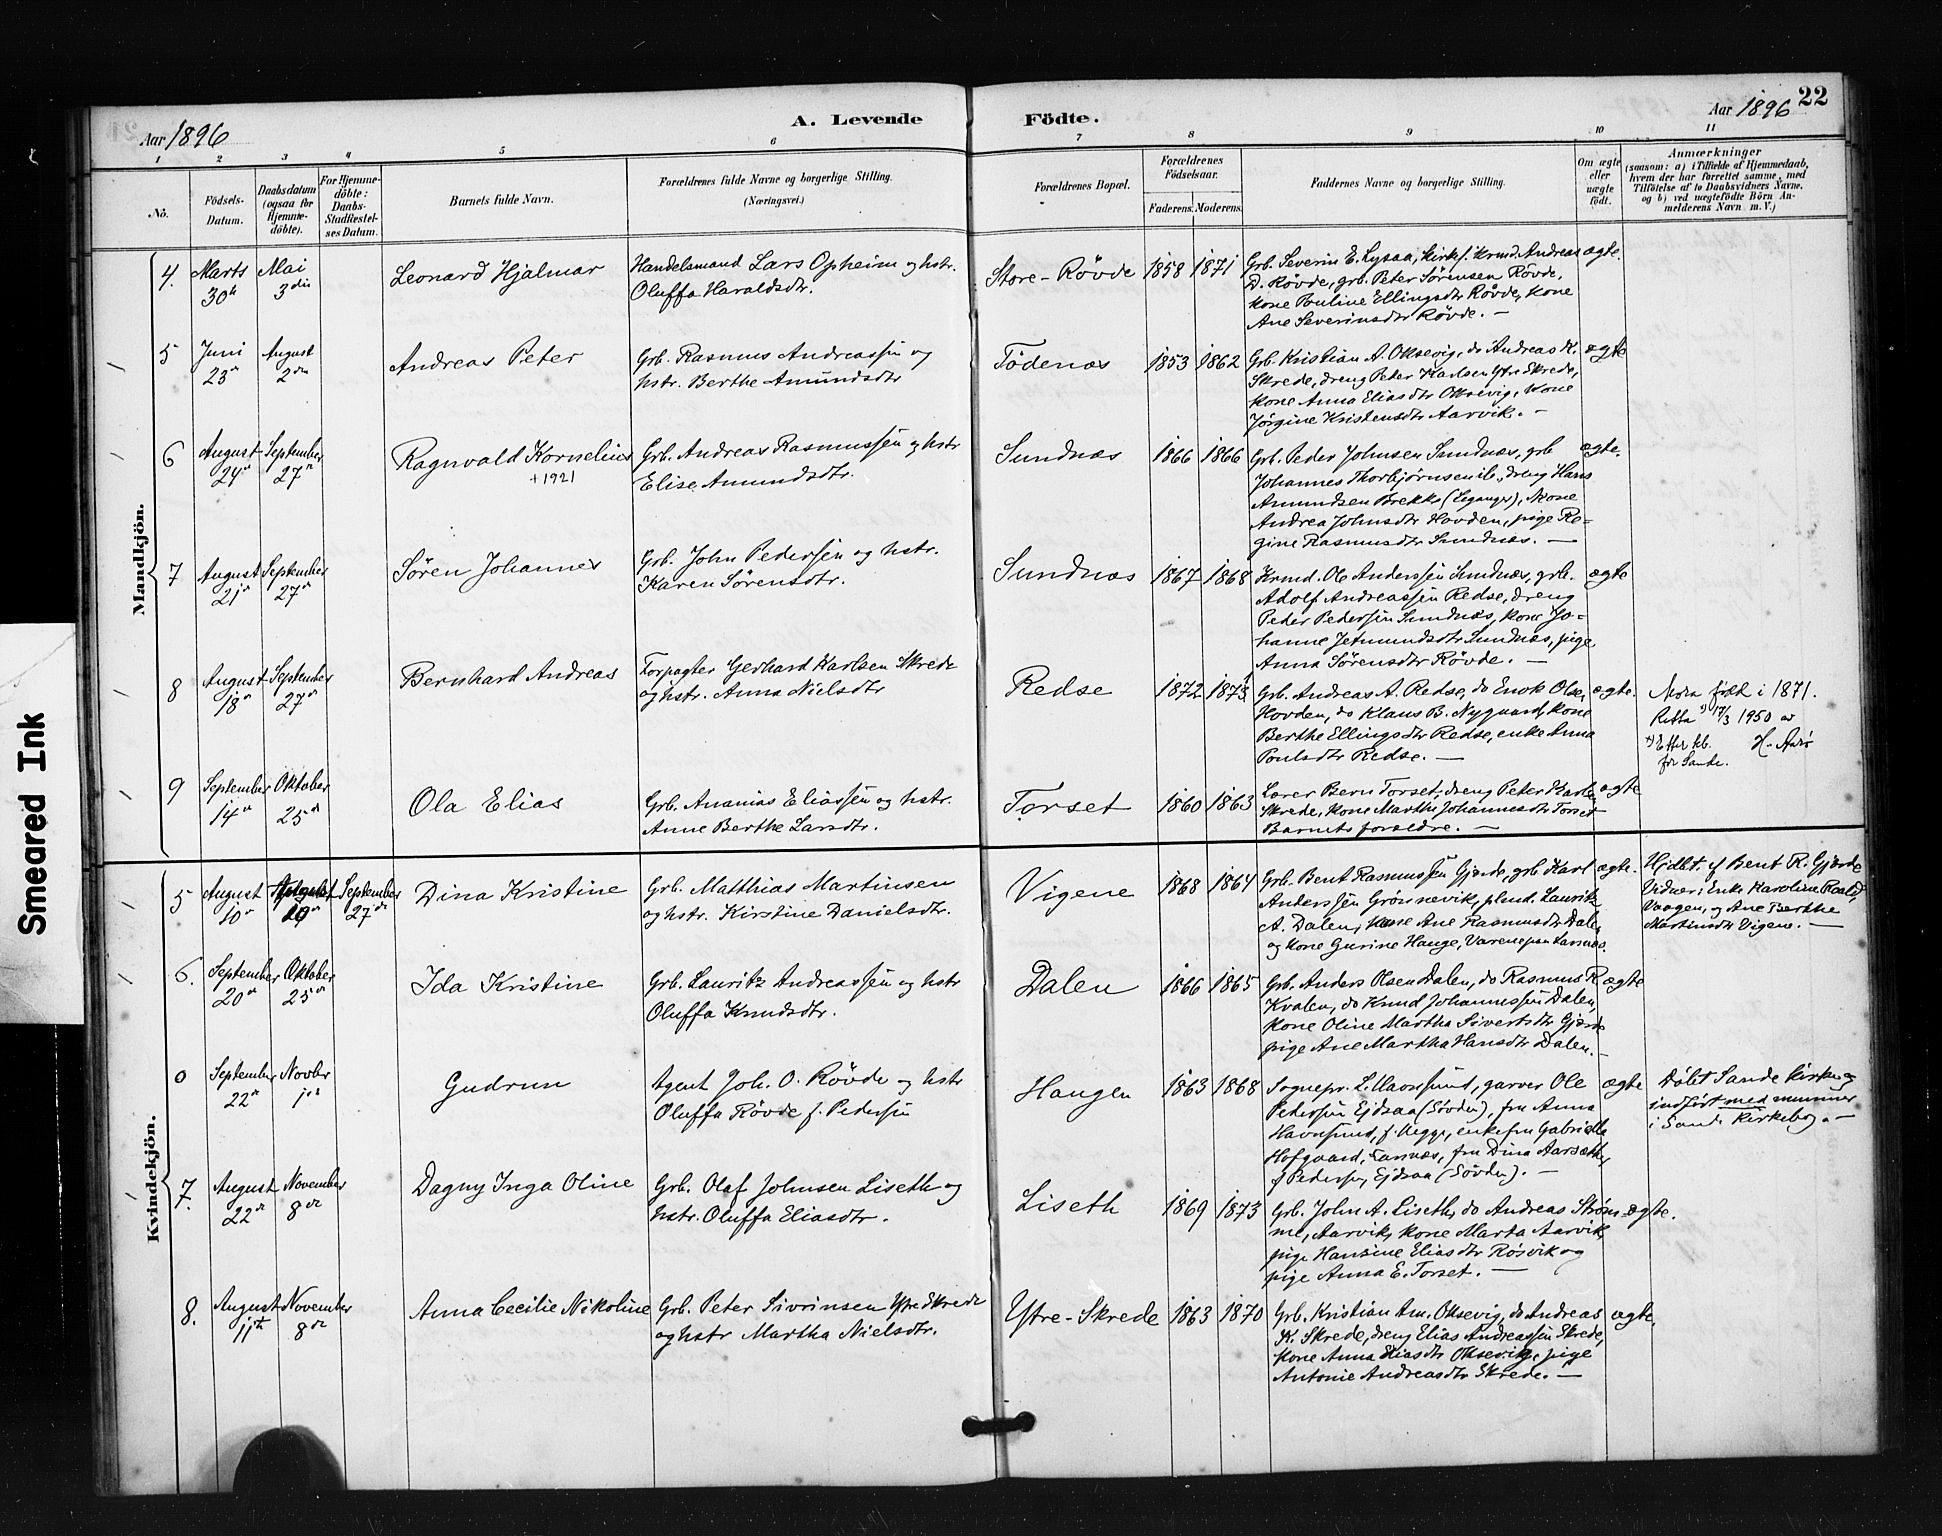 22
Aar 1896
A. Levende Födte.
Aar 1896
1 2 3 4 5 6 7 8 9 10 11
No.
Födsels-
Datum.
Daabsdatum
(ogsaa for
Hjemme-
döbte).
For Hjemme-
döbte:
Daabs-
Stadfæstel-
ses Datum.
Barnets fulde Navn.
Forældrenes fulde Navne og borgerlige Stilling.
(Næringsvei.)
Forældrenes Bopæl.
Forældrenes
Födselsaar.
Faderens. Moderens.
Faddernes Navne og borgerlige Stilling.
Om ægte
eller
uægte
födt.
Anmærkninger
(saasom: a) i Tilfælde af Hjemmedaab,
hvem der har forrettet samme, med
Tilföielse af to Daabsvidners Navne,
og b) ved uægtefödte Börn An-
melderens Navn m. V.)
Mandkjön.
4. Marts
30te
Mai
3die
Leonard Hjalmar
Handelsmand Lars Opheim og hstr.
Oluffa Haraldsdtr.
Store-Røvde
1858 1871
Grb. Severin E. Lysaa, Kirkes. Krmd. Andreas
D. Røvde, grb. Peter Sørensen Røvde,
kone Pauline Ellingsdtr Røvde, kone
Ane Severinsdtr Røvde. —
ægte.
5 Juni
23de
August
2den
Andreas Peter
Grb. Rasmus Andreassen og
hstr. Berthe Amundsdtr
Tødenæs
1853 1862
Grb. Kristian A. Oksevig, do Andreas K.
Skrede, dreng Peter Karlsen Ytre Skrede,
kone Anna Eliasdtr Oksevig, kone
Jørgine Kristensdtr Aarvik. —
ægte
6 August
24de
September
27de
Ragnvald Kornelius
+ 1921
Grb. Andreas Rasmussen og hstr
Elise Amundsdtr.
Sundnæs
1866 1866
Grb. Peder Johnsen Sundnæs, grb
Johannes Thorbjørnsen ib., dreng Hans
Amundsen Brekke (Leganger), kone
Andrea Johnsdtr Hovden, pige Re-
gine Rasmusdtr Sundnæs. —
ægte.
7 August
21de
September
27de
Søren Johannes
Grb. John Pedersen og hstr.
Karen Sørensdtr.
Sundnæs
1867 1868
Krmd. Ole Anderssen Sundnæs, grb.
Adolf Andreassen Redse, dreng
Peder Pedersen Sundnæs, kone Jo-
hanne Jetmundsdtr Sundnæs, pige
Anna Sørensdtr Røvde. —
ægte
8 August
18de
September
27de
Bernhard Andreas
Forpagter Gerhard Karlsen Skrede
og hstr. Anna Nielsdtr
Redse
1872 1873
Grb. Andreas A. Redse, do Enok Olsen
Hovden, do Klaus B. Nygaard, kone
Berthe Ellingsdtr Redse, enke Anna
Poulsdtr Redse. —
ægte.
Mora født i 1871.
Retta x) 17/3 1950 av
x) Etter kb. H. Aarø
for Sande.
9 September
14de
Oktober
25de
Ola Elias
Grb. Ananias Eliassen og hstr.
Anne Berthe Larsdtr.
Torset
1860 1863
Lærer Bern Torset, dreng Peter Karlsen
Skrede, kone Marthe Johannesdtr Torset
Barnets forældre. —
ægte
Kvindekjön.
5 August
10de
September
27de
Dina Kristine
Grb. Matthias Martinsen
og hstr. Kirstine Danielsdtr.
Vigene
1868 1864
Grb. Bent Rasmussen Gjærde, grb Karl
Anderssen Grønnevik, plmd. Lauritz
A. Dalen, kone Ane Rasmusdtr Dalen
og kone Gurine Hauge,
ægte.
Hjdbt. af Bent R. Gjærde
Vidner: Enke Karoline Roald,
Vaagen, og Ane Berthe
Martinsdtr Vigene. —
6. September
20de
Oktober
25de
Ida Kristine
Grb. Lauritz Andreassen og hstr
Oluffa Knudsdtr.
Dalen
1866 1865
Grb. Anders Olsen Dalen, do Rasmus R.
Kvalen, do Knud Johannessen Dalen,
kone Oline Martha Sivertsdtr Gjærde
pige Ane Martha Hansdtr Dalen. —
ægte
0 September
22de
Novbr
1ste
Gudrun
Agent Joh. O. Røvde og hstr
Oluffa Røvde f. Pedersen
Haugen
1863 1868
Sognepr. L. Havnsund, garver Ole
Pederssen Ejdsaa (Søvden), fru Anna
Havnsund, f. Aegge, enkefru Gabrielle
Hofgaard, Larsnæs, fru Dina Aarsæther,
f. Pedersen, Ejdsaa (Søvden). —
ægte
Døbt Sande Kirke og
indført med nummer
i Sande Kirkebog. —
7. August
22de
November
8de
Dagny Inga Oline
Grb. Olaf Johnsen Liseth og
hstr. Oluffa Eliasdtr.
Liseth
1869 1873
Grb. John A. Liseth, do Andreas Strøm-
me, Aarvik, kone Marta Aarvik,
pige Hansine Eliasdtr Røsvik og
pige Anna E. Torset. —
ægte.
8. August
11te
November
8de
Anna Cecilie Nikoline
Grb. Peter Sivrinsen Ytre Skrede
og hstr Martha Nielsdtr.
Ytre-Skrede
1863 1870
Grb. Kristian Am. Oksevig, do Andreas
K. Skrede, dreng Elias Andreassen Skrede,
kone Anna Eliasdtr Oksevik, pige
Antonie Andreasdtr Skrede. —
ægte.
Smeared Ink